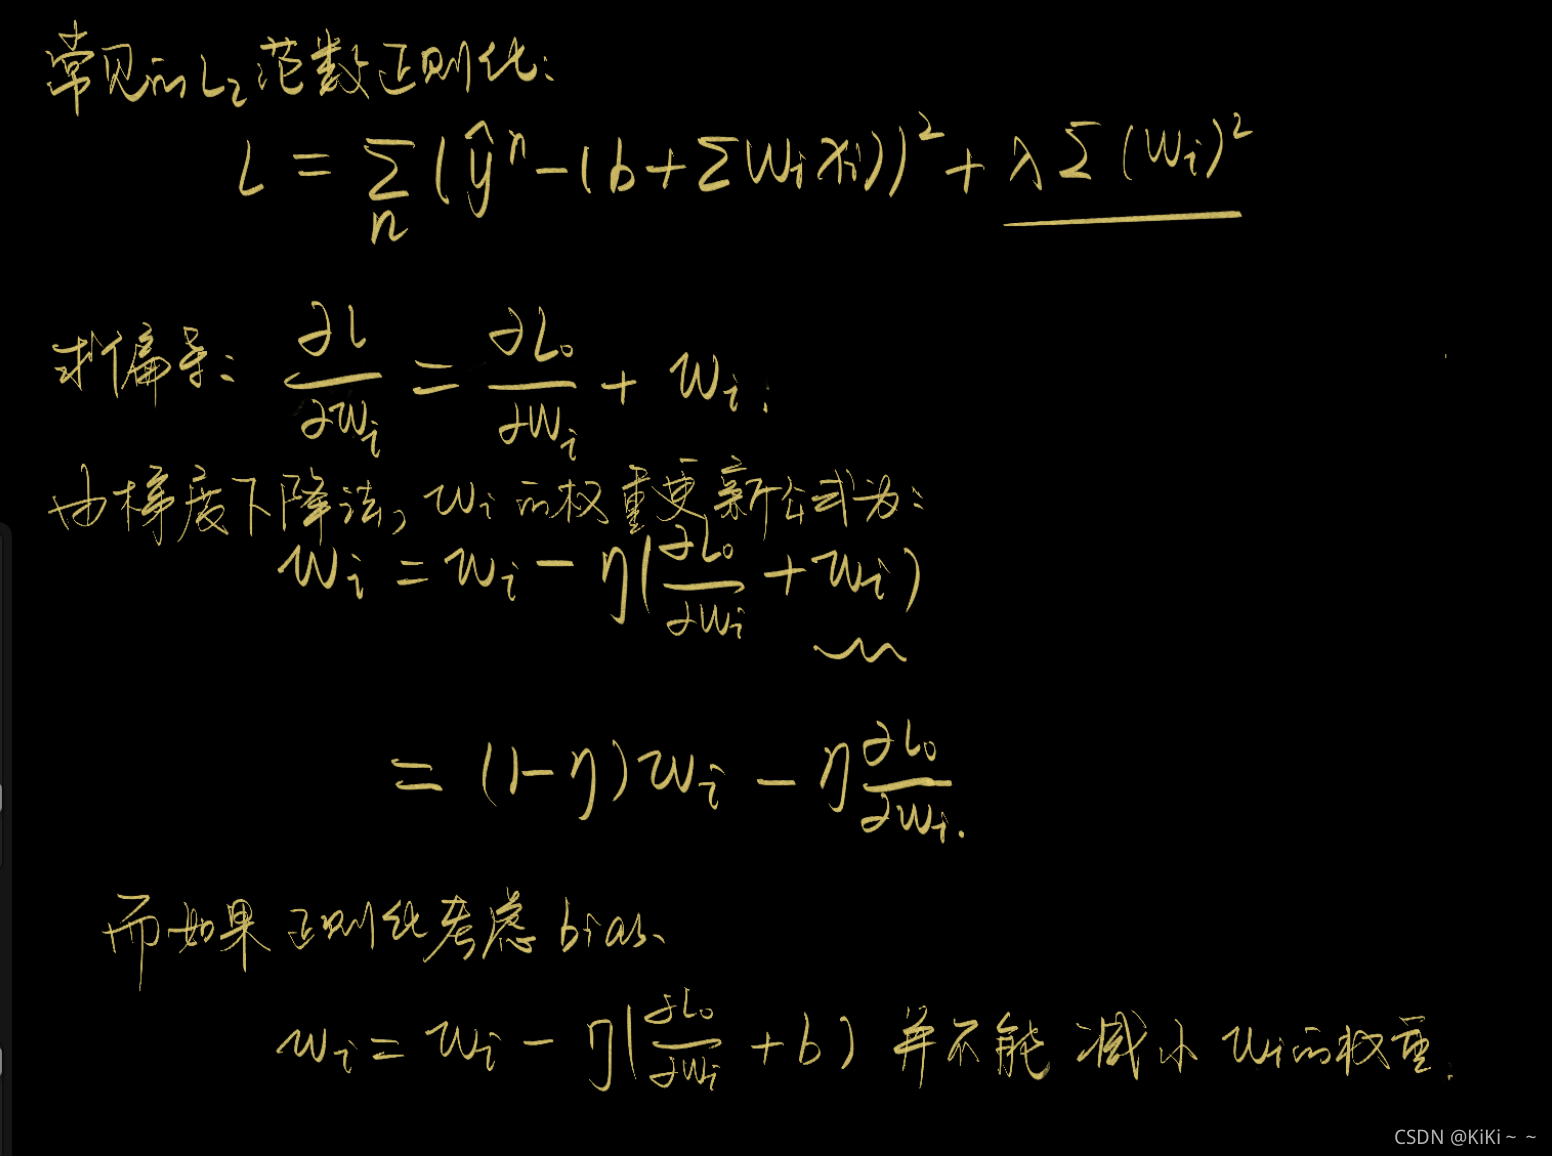 常见的L₂范数正则化:
L = Σ_n (ŷⁿ - (b + Σ Wᵢ xᵢ))² + λ Σ (Wᵢ)²
求偏导: ∂L/∂Wᵢ = ∂L₀/∂Wᵢ + Wᵢ.
由梯度下降法, Wᵢ的权重更新公式为:
Wᵢ = Wᵢ - η(∂L₀/∂Wᵢ + Wᵢ)
= (1-η)Wᵢ - η ∂L₀/∂Wᵢ.
而如果正则化考虑bias、
Wᵢ = Wᵢ - η(∂L₀/∂Wᵢ + b) 并不能减小Wᵢ的权重.
CSDN @KiKi~ ~